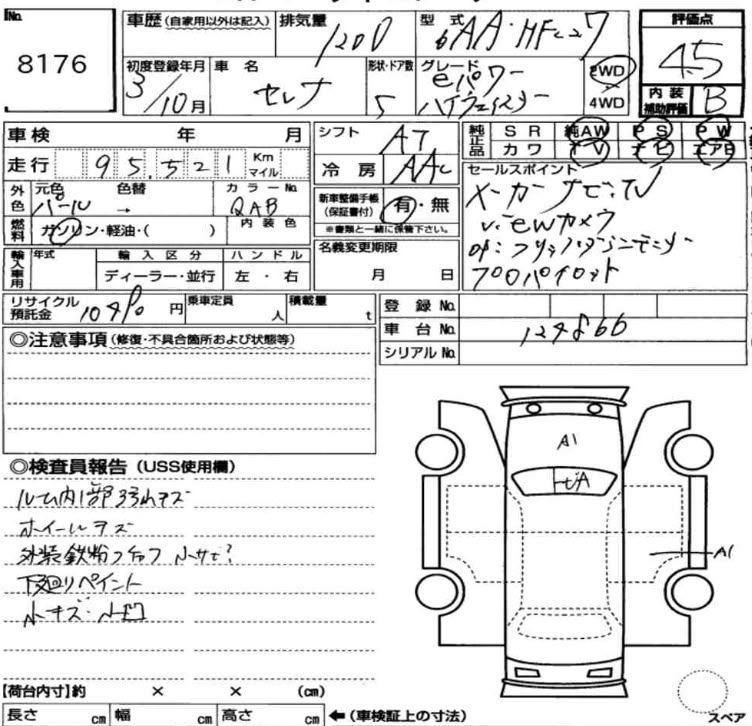 No.
8176
車歴 (自家用以外は記入)
排気量 1200
型式 6AA・HFC27
初度登録年月 3/10月
車名 セレナ
形状・ドア数 5
グレード eパワー
ハイウェイスター
2WD
4WD
評価点 4.5
内装補助評価 B
車検 年 月
走行 95,521 Km マイル
外色 元色 パール 色替 → カラーNo. QAB
燃料 ガソリン・軽油・( ) 内装色
輸入車用 年式 輸入区分 ディーラー・並行 ハンドル 左・右
リサイクル預託金 円 乗車定員 人 積載量 t
シフト AT
冷房 AAC
新車整備手帳 (保証書付) 有・無
※書類と一緒に保管下さい。
名義変更期限
月 日
純正品 SR 純AW PS PW
カワ TV ナビ エアB
セールスポイント
メーカーナビ・TV
viewカメラ
プロパイロット
登録No.
車台No. 124866
シリアルNo.
◎注意事項 (修復・不具合箇所および状態等)
◎検査員報告 (USS使用欄)
ルーム内
ホイールキズ
外装鉄粉
下廻りペイント
小キズ・小凹
A1
A1
【荷台内寸】約 × × (cm)
長さ cm 幅 cm 高さ cm ←(車検証上の寸法)
スペア